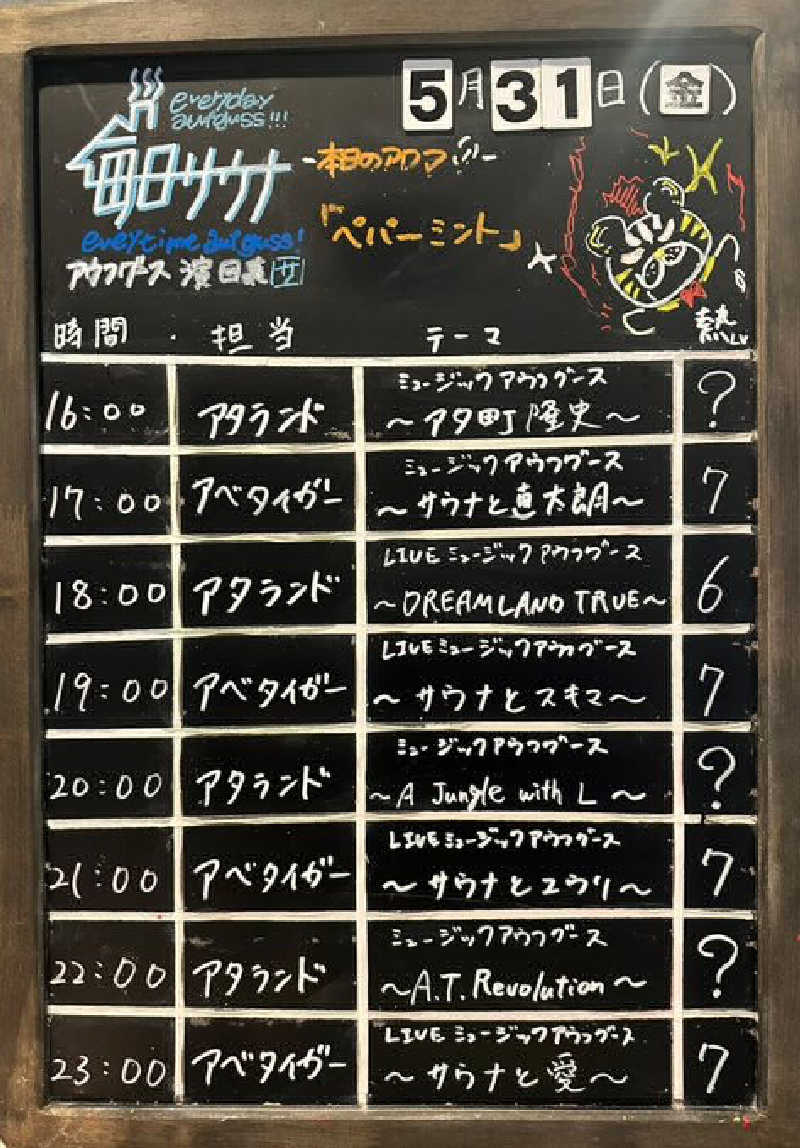 everyday
aufguss!!!
毎日サウナ
everytime aufguss!
アウフグース
5月31日(金)
-本日のアロマ-
「ペパーミント」
時間・担当 テーマ 熱LV
16:00 アタランド ミュージックアウフグース ?
～アタ町隆史～
17:00 アベタイガー ミュージックアウフグース 7
～サウナと直太朗～
18:00 アタランド LIVEミュージックアウフグース 6
～DREAMLAND TRUE～
19:00 アベタイガー LIVEミュージックアウフグース 7
～サウナとスキマ～
20:00 アタランド ミュージックアウフグース ?
～A Jungle with L～
21:00 アベタイガー LIVEミュージックアウフグース 7
～サウナとユウリ～
22:00 アタランド ミュージックアウフグース ?
～A.T. Revolution～
23:00 アベタイガー LIVEミュージックアウフグース 7
～サウナと愛～